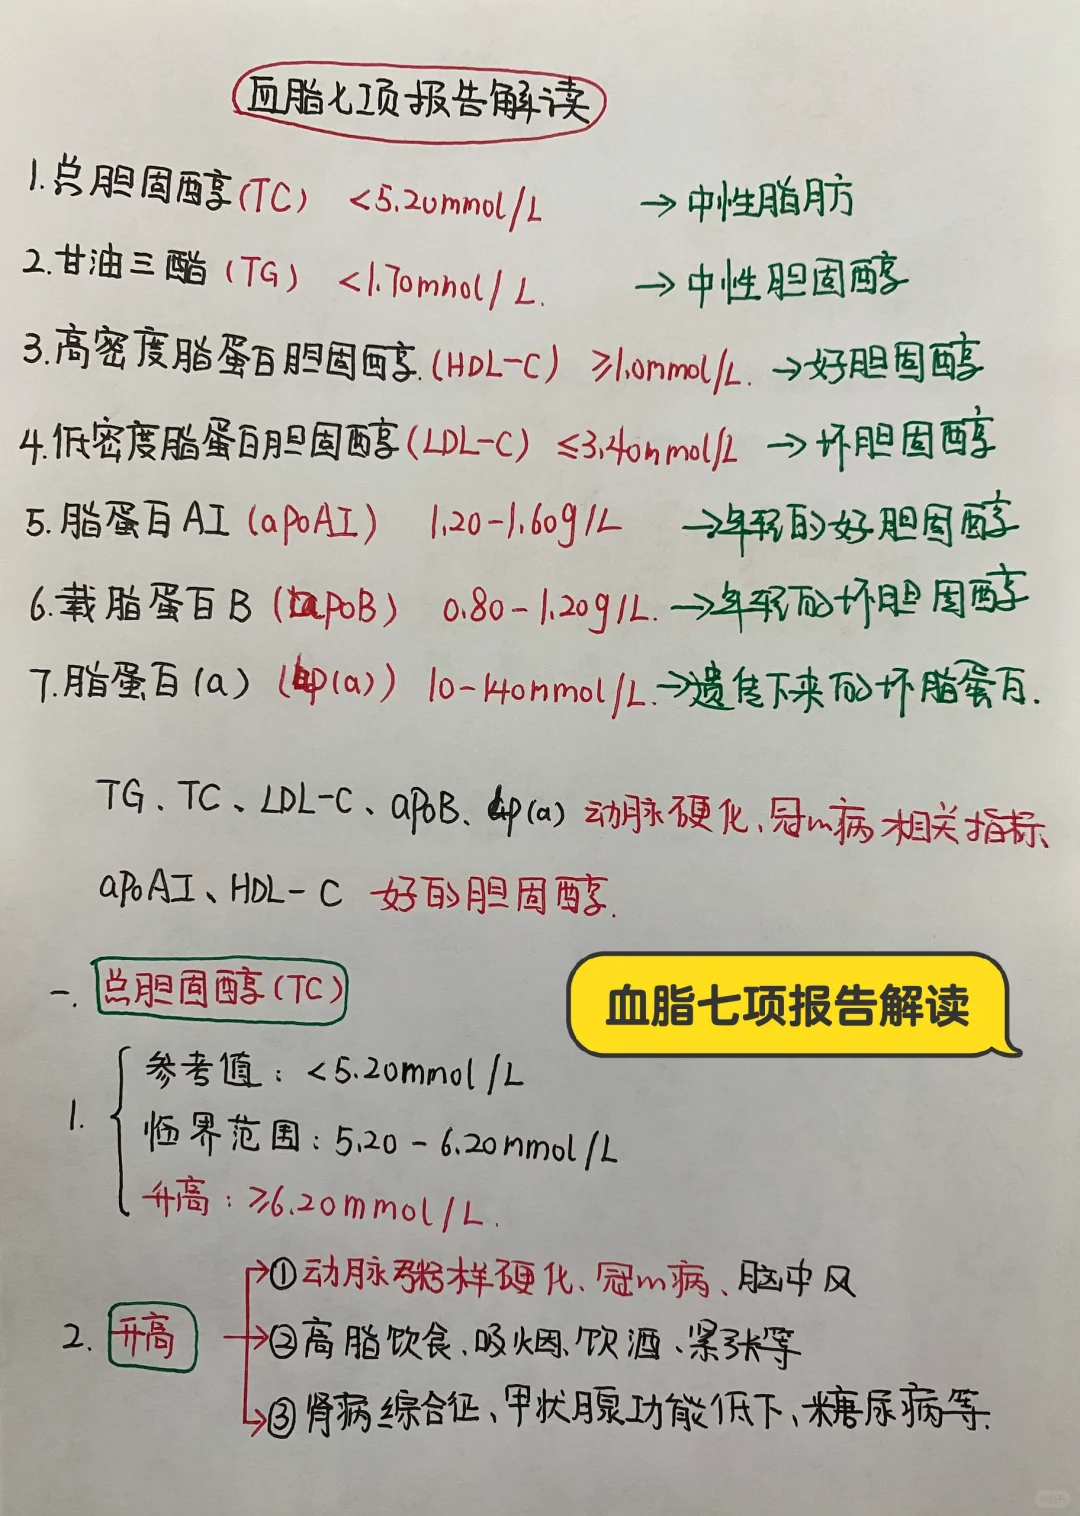 血脂七项报告解读
1.总胆固醇(TC) <5.20mmol/L →中性脂肪方
2.甘油三酯(TG) <1.70mmol/L. →中性胆固醇
3.高密度脂蛋白胆固醇.(HDL-C) ≥1.0mmol/L. →好胆固醇
4.低密度脂蛋白胆固醇(LDL-C) ≤3.40mmol/L →坏胆固醇
5.脂蛋白AI(apoAI) 1.20-1.60g/L →年轻的好胆固醇
6.载脂蛋白B(apoB) 0.80-1.20g/L. →年轻的坏胆固醇
7.脂蛋白(a)(Lp(a)) 10-140nmol/L. →遗传下来的坏脂蛋白.
TG、TC、LDL-C、apoB、Lp(a) 动脉硬化、冠心病相关指标、
apoAI、HDL-C 好的胆固醇.
一. 总胆固醇(TC)
血脂七项报告解读
1. 参考值:<5.20mmol/L
临界范围:5.20-6.20mmol/L
升高:≥6.20mmol/L.
2. 升高
①动脉粥样硬化、冠心病、脑中风
②高脂饮食、吸烟、饮酒、紧张等
③肾病综合征、甲状腺功能低下、糖尿病等.